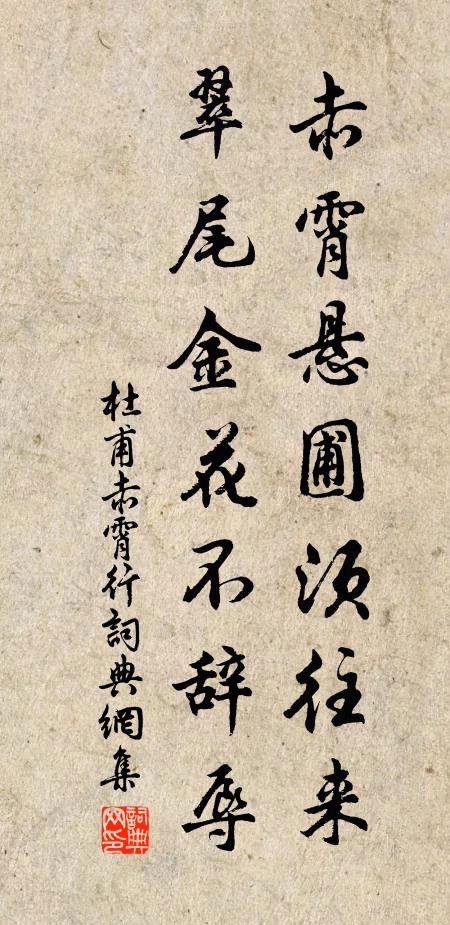 赤霄悬圃须往来
翠尾金花不辞辱
杜甫赤霄行詞典網集
詞典網印